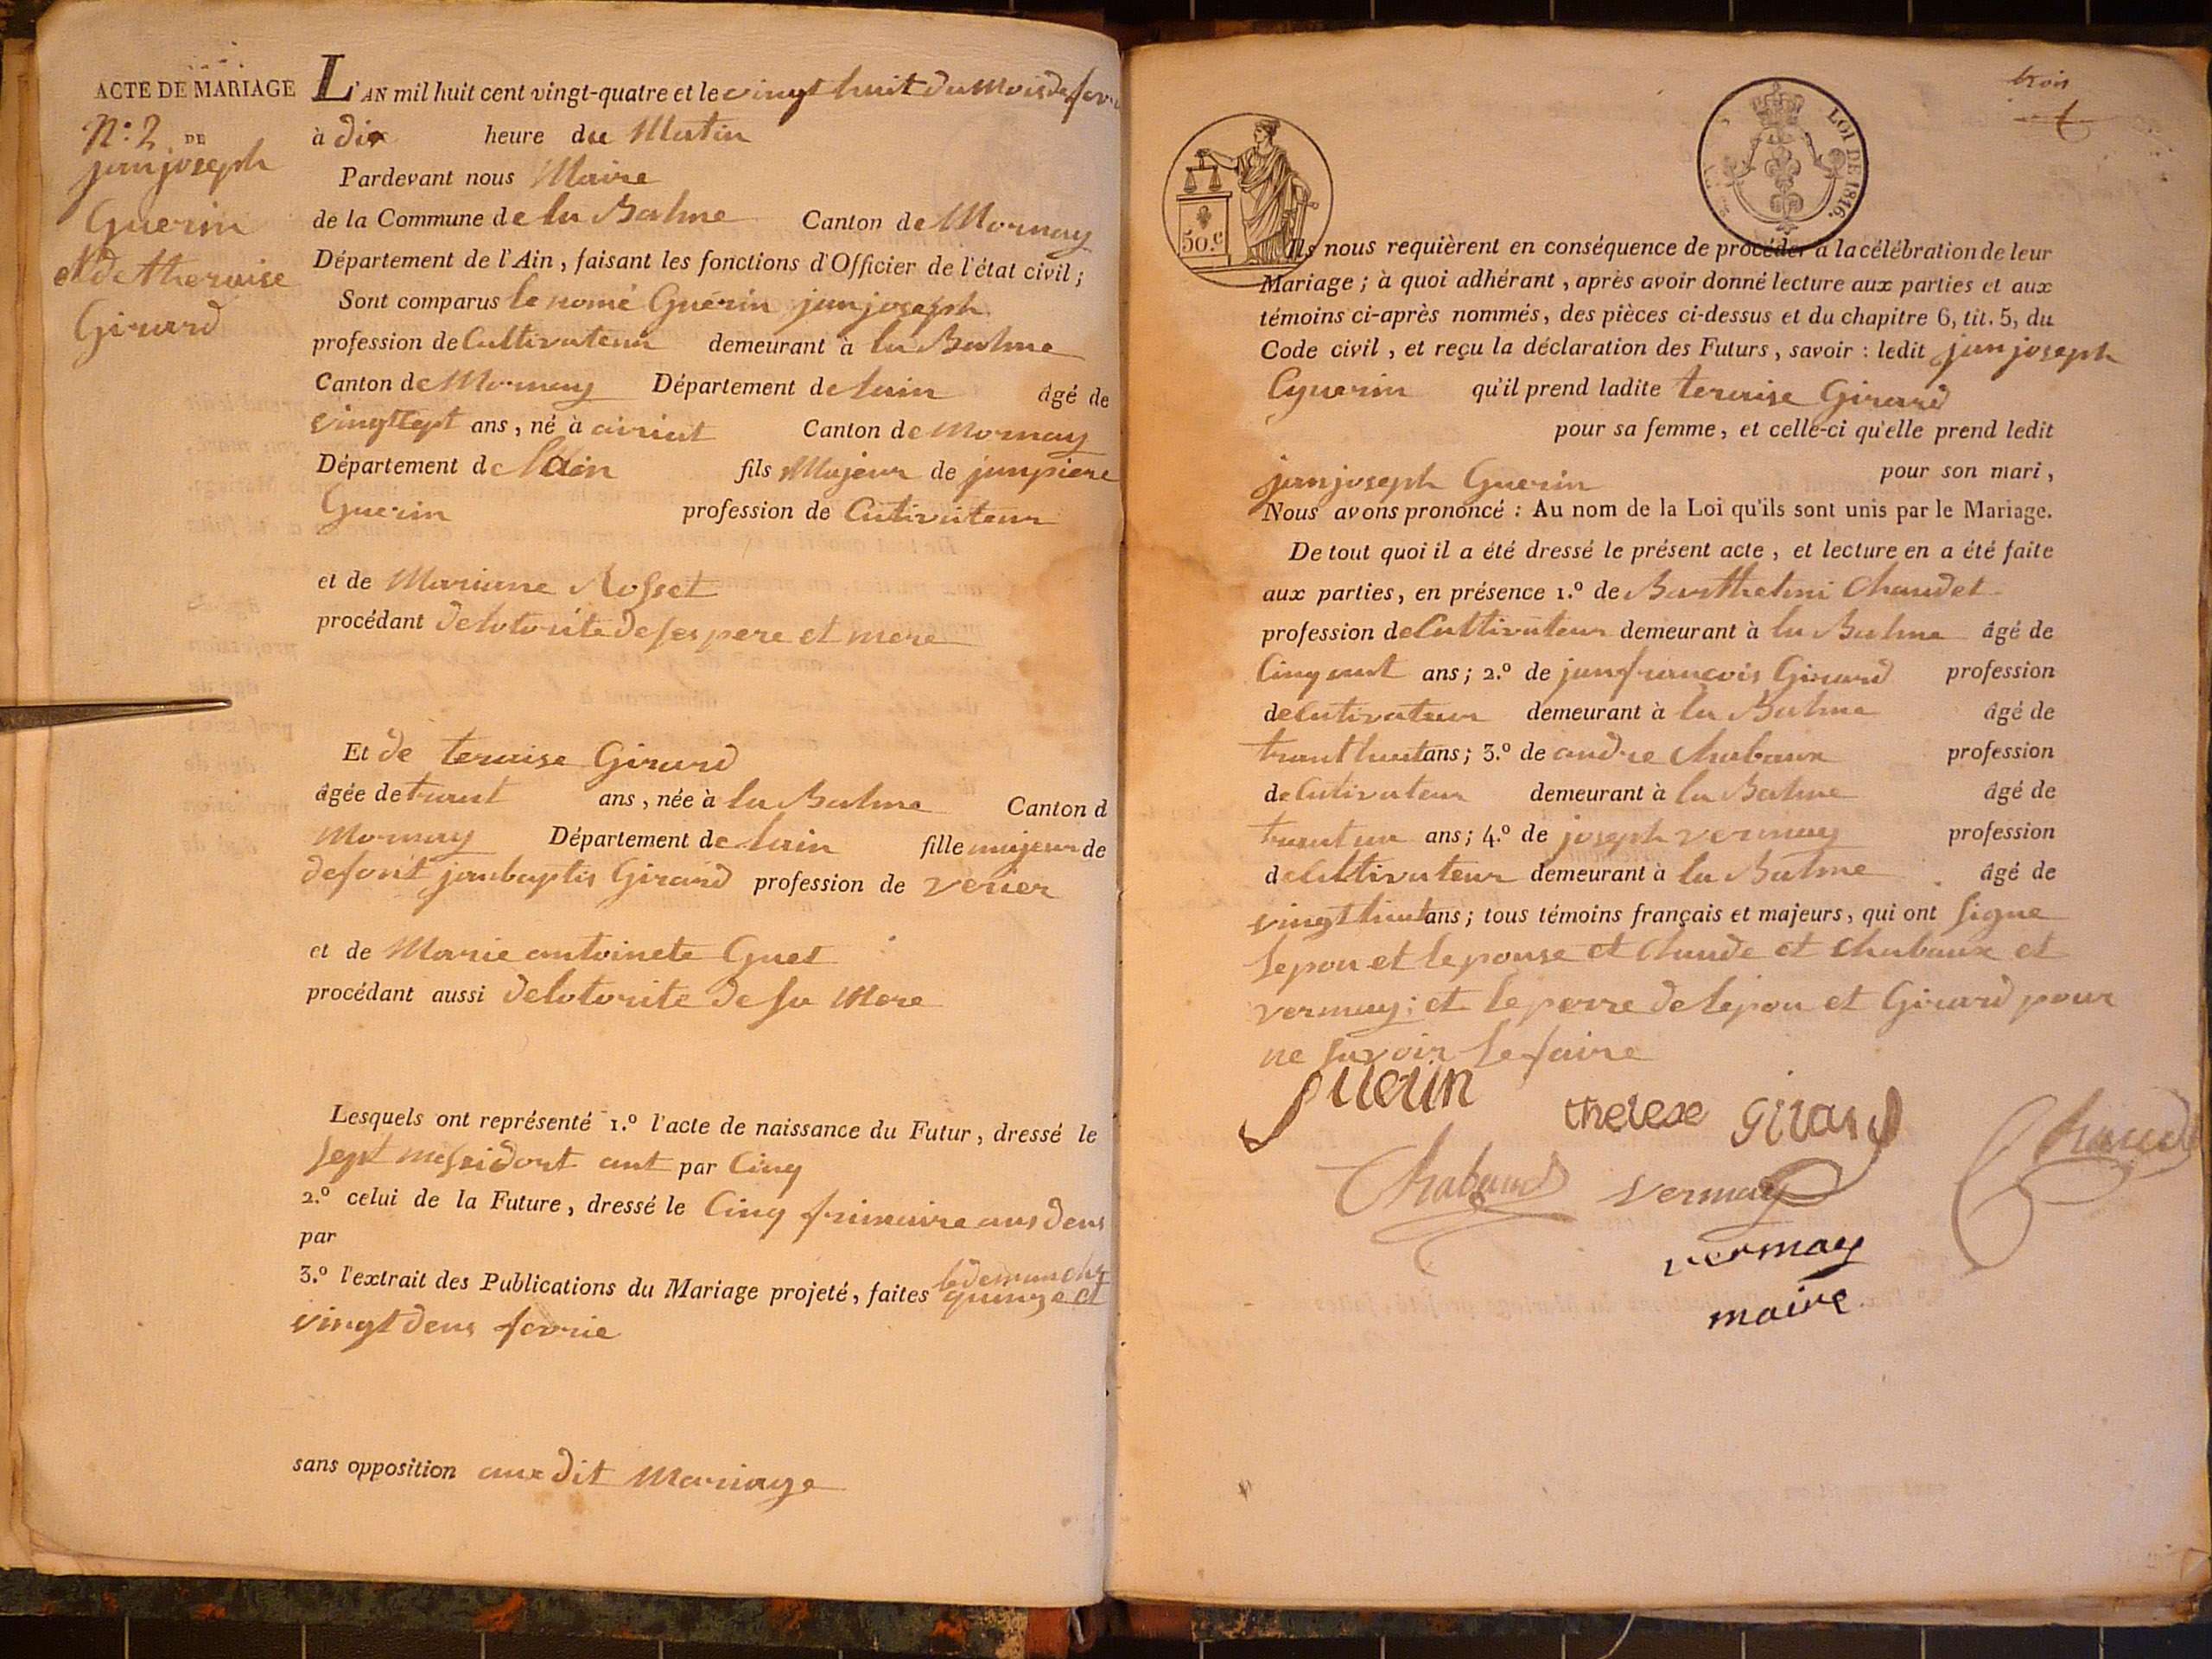 ACTE DE MARIAGE
N.o 2 DE
janjoseph
Guerin
et de theraise
Girard
L'AN mil huit cent vingt-quatre et le vingt huit du mois de fevri
à dix heure du Matin
Pardevant nous Maire
de la Commune de la Balme Canton de Mornay
Département de l'Ain, faisant les fonctions d'Officier de l'état civil;
Sont comparus le nomé Guérin janjoseph
profession de Cultivateur demeurant à la Balme
Canton de Mornay Département de lain âgé de
vingtsept ans, né à airiat Canton de Mornay
Département de lain fils Majeur de janpiere
Guerin profession de Cutivateur
et de Mariane Rosset
procédant delotorite de ses pere et mere
Et de teraise Girard
âgée de trant ans, née à la Balme Canton d
Mornay Département de lain fille majeur de
defont janbaptis Girard profession de verier
et de Marie antoinete Guet
procédant aussi delotorite de sa Mere
Lesquels ont représenté 1.º l'acte de naissance du Futur, dressé le
sept messidort ant par Cinq
2.º celui de la Future, dressé le Cinq frimaire ans deus
par
3.º l'extrait des Publications du Mariage projeté, faites le demanche
quinze et
vingt deus fevrie
sans opposition aux dit Mariage
trois
50.c
LOI DE 1816.
Ils nous requièrent en conséquence de procéder à la célébration de leur
Mariage; à quoi adhérant, après avoir donné lecture aux parties et aux
témoins ci-après nommés, des pièces ci-dessus et du chapitre 6, tit. 5, du
Code civil, et reçu la déclaration des Futurs, savoir: ledit jan joseph
Guerin qu'il prend ladite teraise Girard
pour sa femme, et celle-ci qu'elle prend ledit
janjoseph Guerin pour son mari,
Nous avons prononcé: Au nom de la Loi qu'ils sont unis par le Mariage.
De tout quoi il a été dressé le présent acte, et lecture en a été faite
aux parties, en présence 1.º de Barthelmi Chaudet
profession de Cultivateur demeurant à la Balme âgé de
Cinq ant ans; 2.º de janfrancois Girard profession
de Cutivateur demeurant à la Balme âgé de
trant huit ans; 3.º de andre Chabaux profession
de Cutivateur demeurant à la Balme âgé de
trant un ans; 4.º de joseph vermay profession
de Cultivateur demeurant à la Balme âgé de
vingt huit ans; tous témoins français et majeurs, qui ont signe
lepou et lepouse et Chaude et Chabaux et
vermay; et le perre de lepou et Girard pour
ne savoir le faire
guerin
therese Girard
Chabaud vermay
vermay
maire